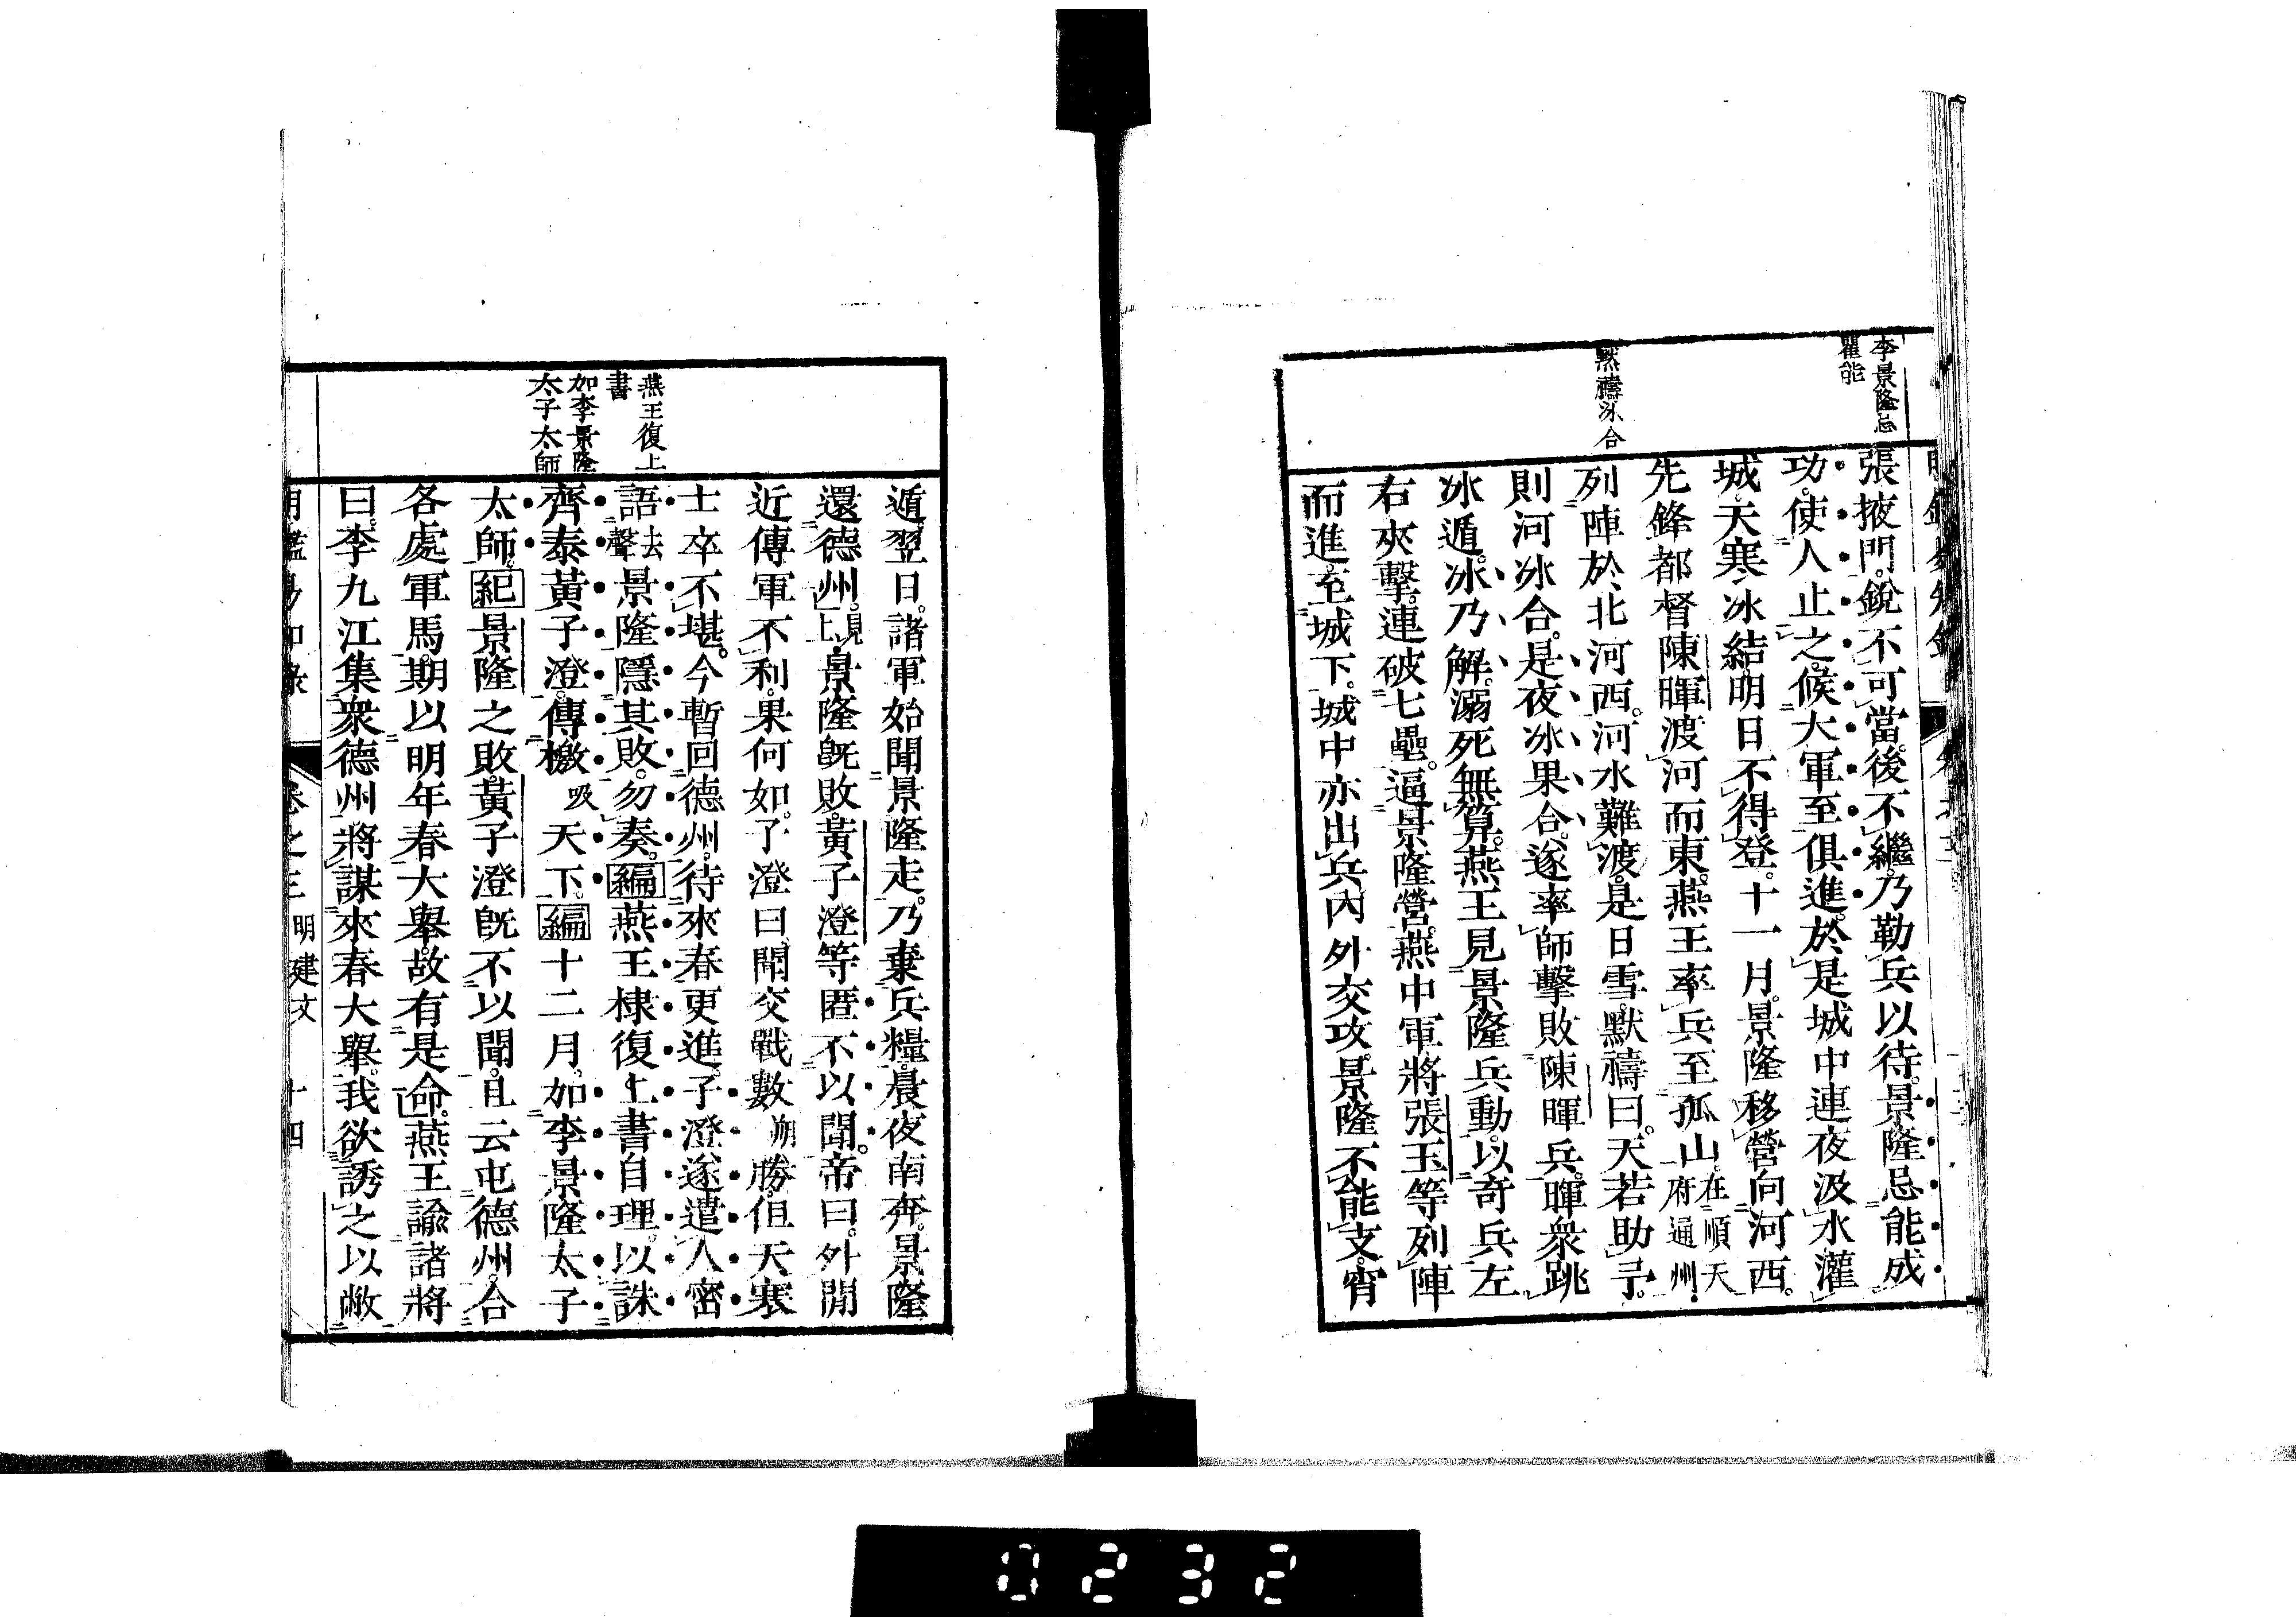 李景隆忌
瞿能
默禱冰合
張掖門。銳不可當。後不繼。乃勒兵以待。景隆忌能成
功。使人止之。候大軍至俱進。於是城中連夜汲水灌
城。天寒冰結。明日不得登。十一月。景隆移營向河西。
先鋒都督陳暉渡河而東。燕王率兵至孤山。在順天府通州
列陣於北河西。河水難渡。是日雪。默禱曰。天若助予。
則河冰合。是夜冰果合。遂率師擊敗陳暉兵。暉衆跳
冰遁。冰乃解。溺死無算。燕王見景隆兵動。以奇兵左
右夾擊。連破七壘。逼景隆營。燕中軍將張玉等列陣
而進。至城下。城中亦出兵。內外交攻。景隆不能支。宵
燕王復上
書
加李景隆
太子太師
遁。翌日。諸軍始聞景隆走。乃棄兵糧。晨夜南奔。景隆
還德州。見上景隆旣敗。黃子澄等匿不以聞。帝曰。外間
近傳軍不利。果何如。子澄曰。聞交戰數朔勝。但天寒
士卒不堪。今暫回德州。待來春更進。子澄遂遣人密
語去聲景隆隱其敗。勿奏。編燕王棣復上書自理。以誅
齊泰黃子澄。傳檄吸天下。編十二月。加李景隆太子
太師。紀景隆之敗。黃子澄旣不以聞。且云屯德州。合
各處軍馬。期以明年春大舉。故有是命。燕王諭諸將
曰。李九江集衆德州。將謀來春大舉。我欲誘之以敝
明鑑易知錄 卷之三 明建文 十四
0232